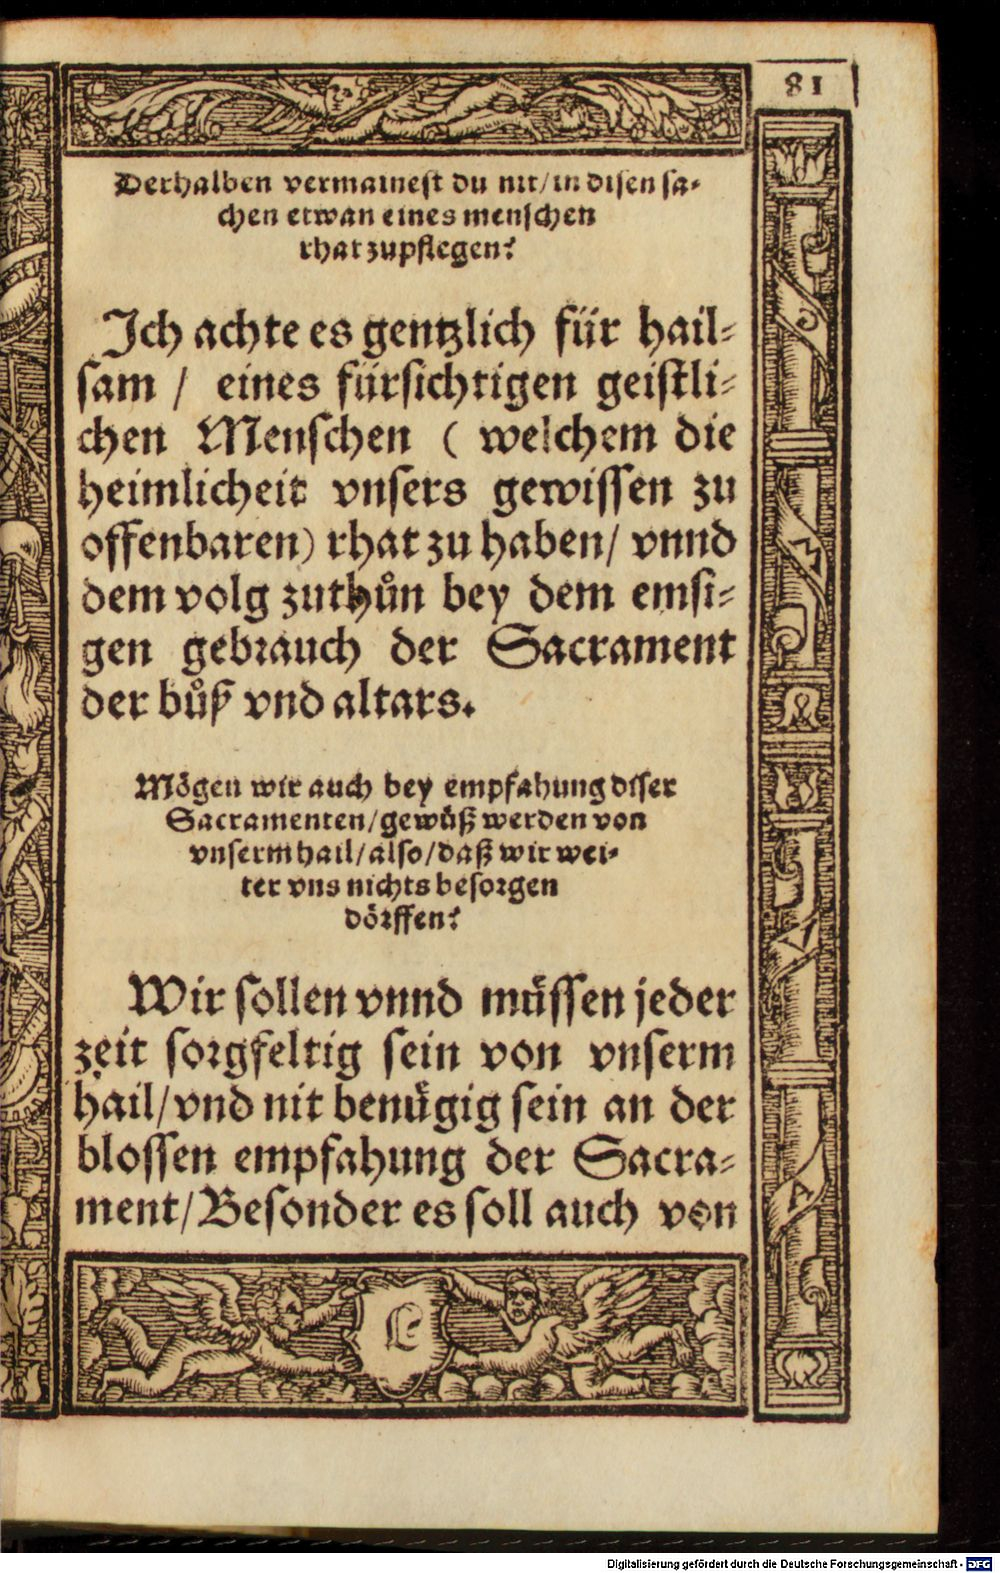 81
Derhalben vermainest du nit/in disen sa-
chen etwan eines menschen
rhat zupflegen?
Ich achte es gentzlich für hail-
sam / eines fürsichtigen geistli-
chen Menschen ( welchem die
heimlicheit vnsers gewissen zu
offenbaren) rhat zu haben/ vnnd
dem volg zuthůn bey dem emsi-
gen gebrauch der Sacrament
der bůß vnd altars.
Mögen wir auch bey empfahung diser
Sacramenten/gewüß werden von
vnserm hail/also/daß wir wei-
ter vns nichts besorgen
dörffen?
Wir sollen vnnd müssen jeder
zeit sorgfeltig sein von vnserm
hail/vnd nit benügig sein an der
blossen empfahung der Sacra-
ment/Besonder es soll auch von
Digitalisierung gefördert durch die Deutsche Forschungsgemeinschaft - DFG